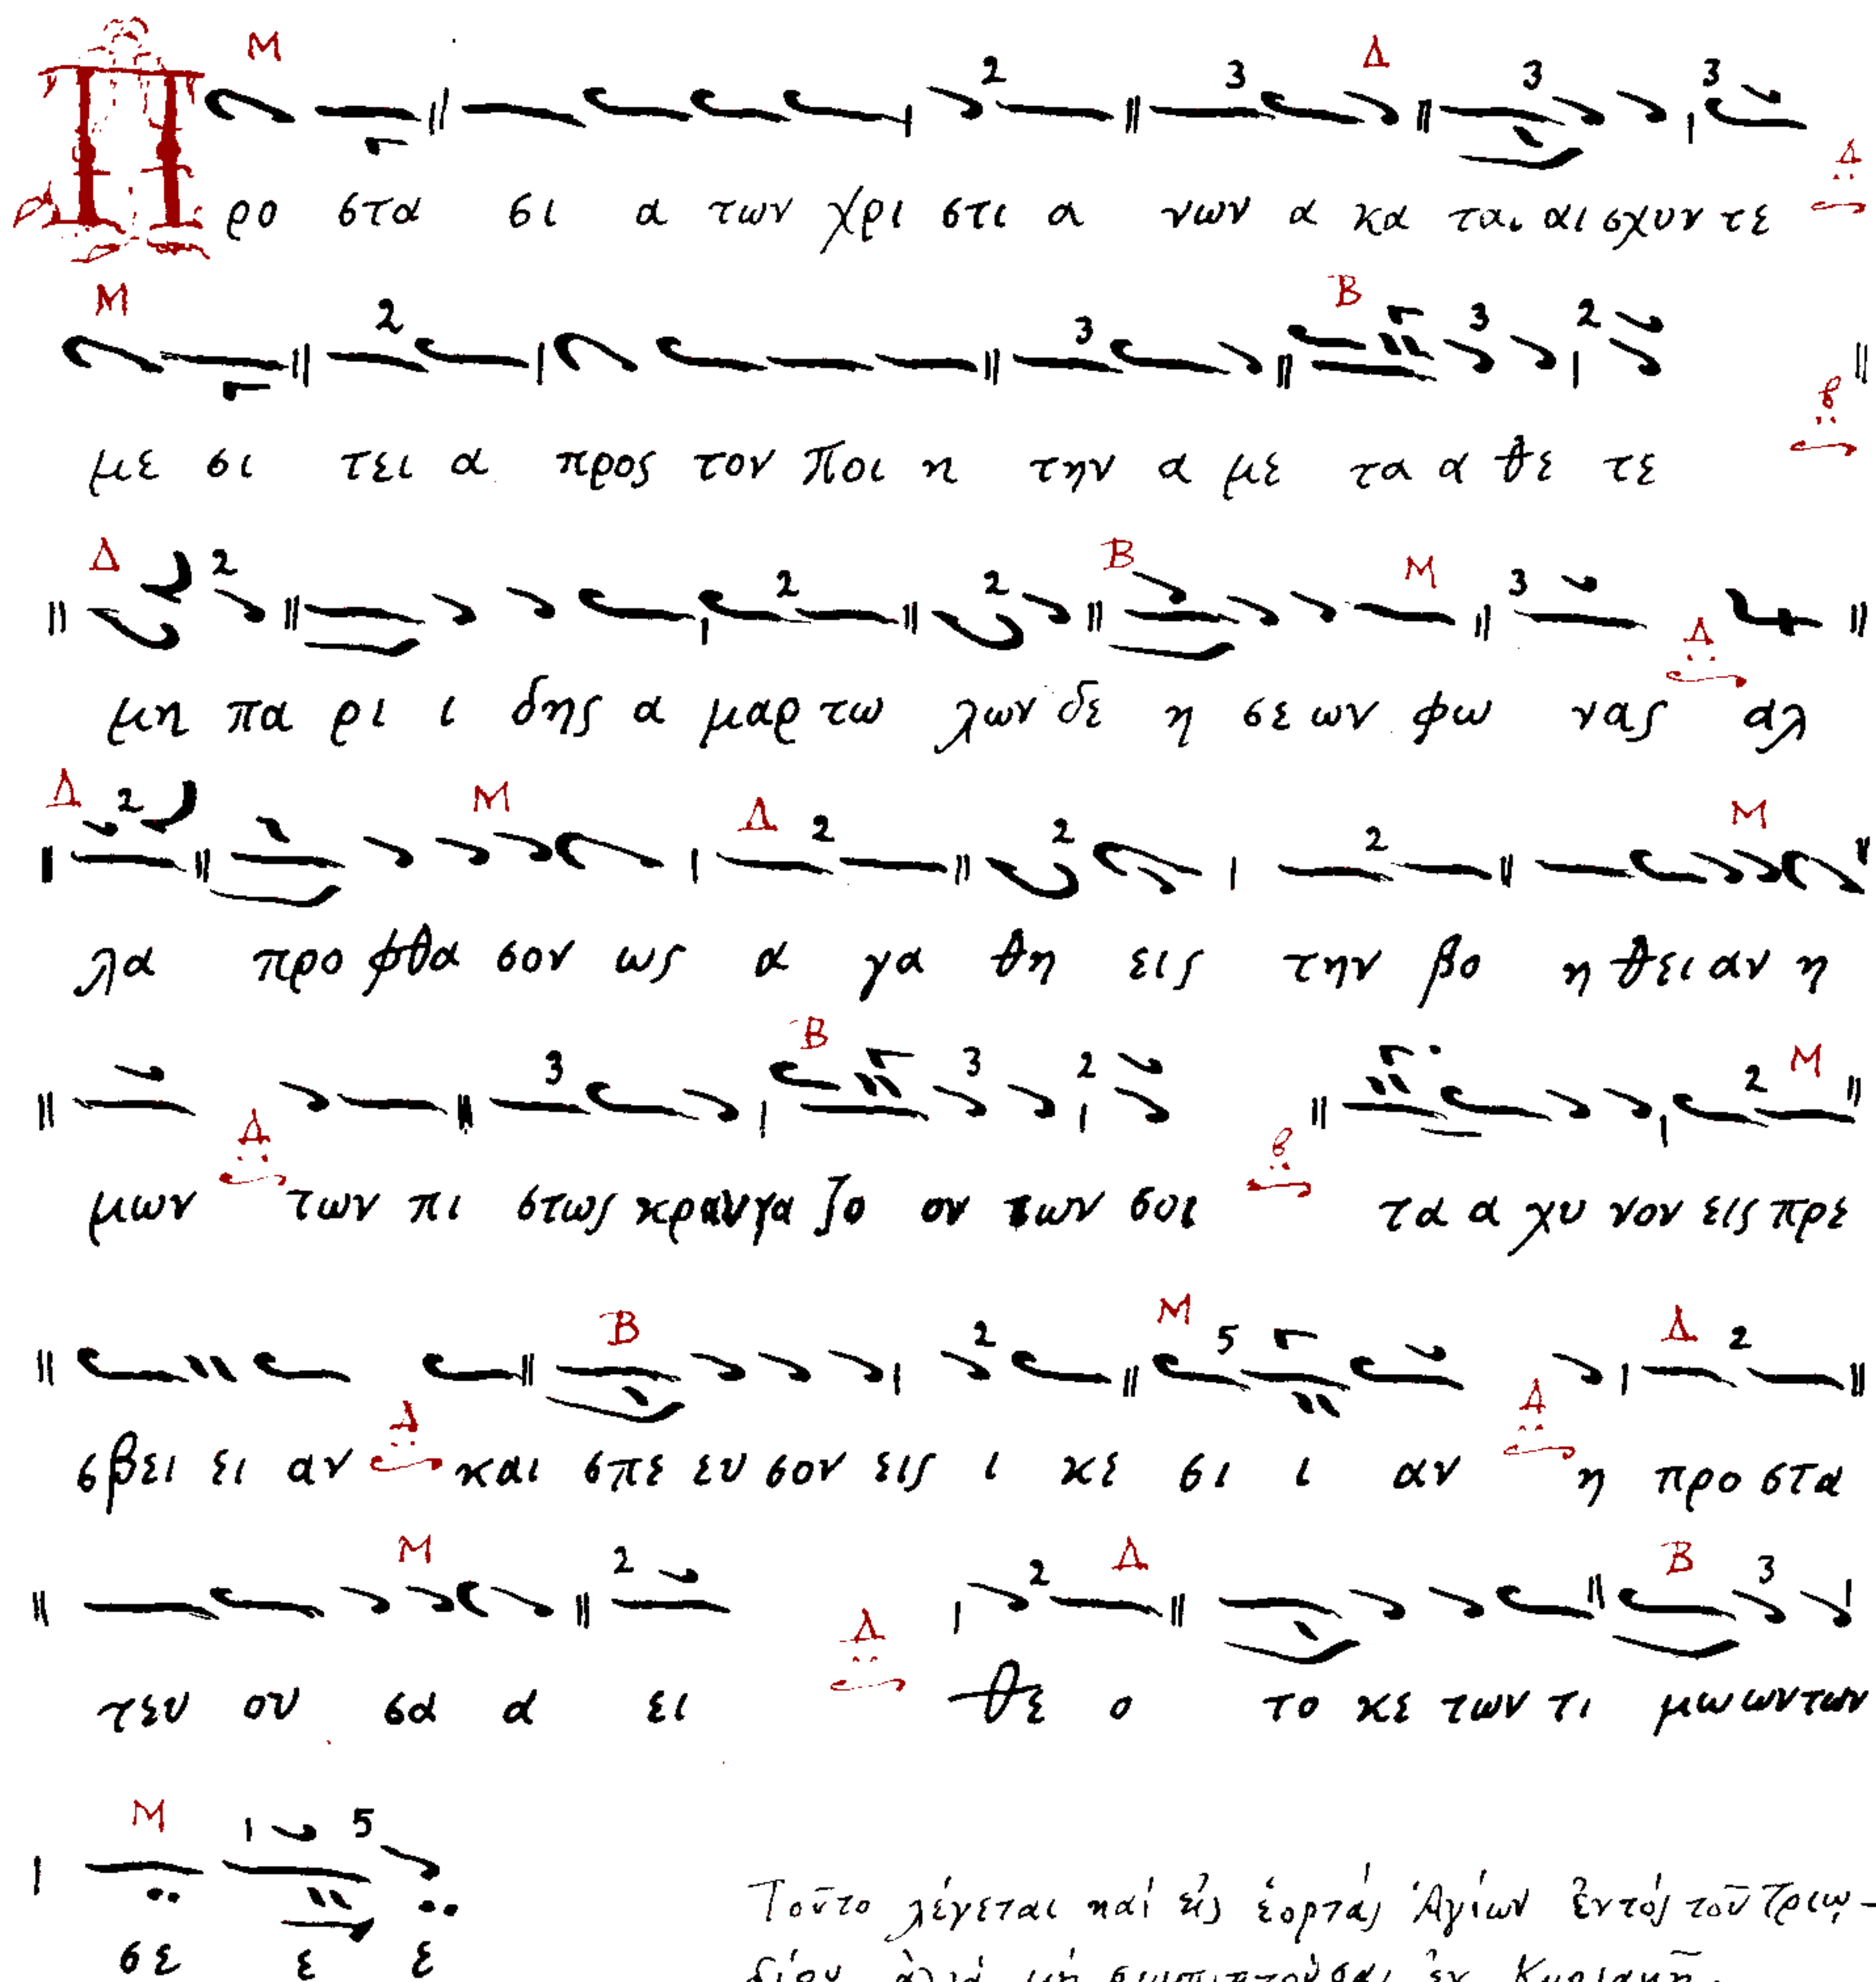 Προ στα σι α των χρι στι α νων α κα ται αι σχυν τε
με σι τει α προς τον ποι η την α με τα α θε τε
μη πα ρι ι δης α μαρ τω λων δε η σε ων φω νας αλ
λα προ φθα σον ως α γα θη εις την βο η θει αν η
μων των πι στως κραυγα ζο ον των σοι τα α χυ νον εις πρε
σβει ει αν και σπε ευ σον εις ι κε σι ι αν η προ στα
τευ ου σα α ει θε ο το κε των τι μω ων των
σε ε ε
Τοῦτο λέγεται καί εἰς ἑορτάς Ἁγίων ἐντός τοῦ Τριῳ-
δίου ἀλλά μή συμπιπτούσαι ἐν Κυριακῇ.